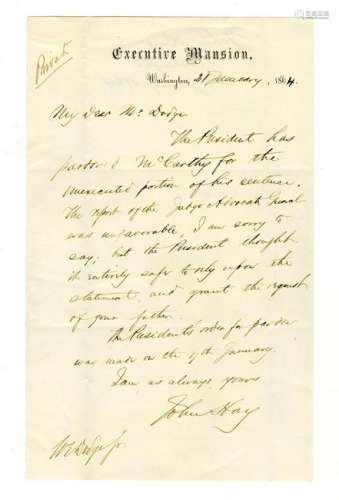 Private
Executive Mansion,
Washington, 21 January, 1864.
My Dear Mr. Dodge
The President has
pardoned McCarthy for the
unexecuted portion of his sentence.
The report of the Judge Advocate General
was unfavorable, I am sorry to
say; but the President thought
it entirely safe to rely upon the
statement, and grant the request
of your father.
The President's order for pardon
was made on the 19th January.
I am as always yours
John Hay
W E Dodge Jr.